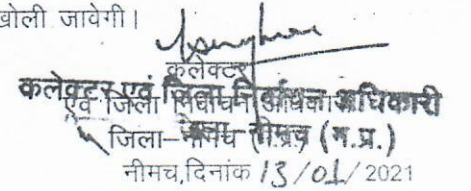 खोली जावेगी।
कलेक्टर
कलेक्टर एवं जिला निर्वाचन अधिकारी
एवं जिला निर्वाचन अधिकारी
जिला-नीमच (म.प्र.)
नीमच,दिनांक 13/01/2021